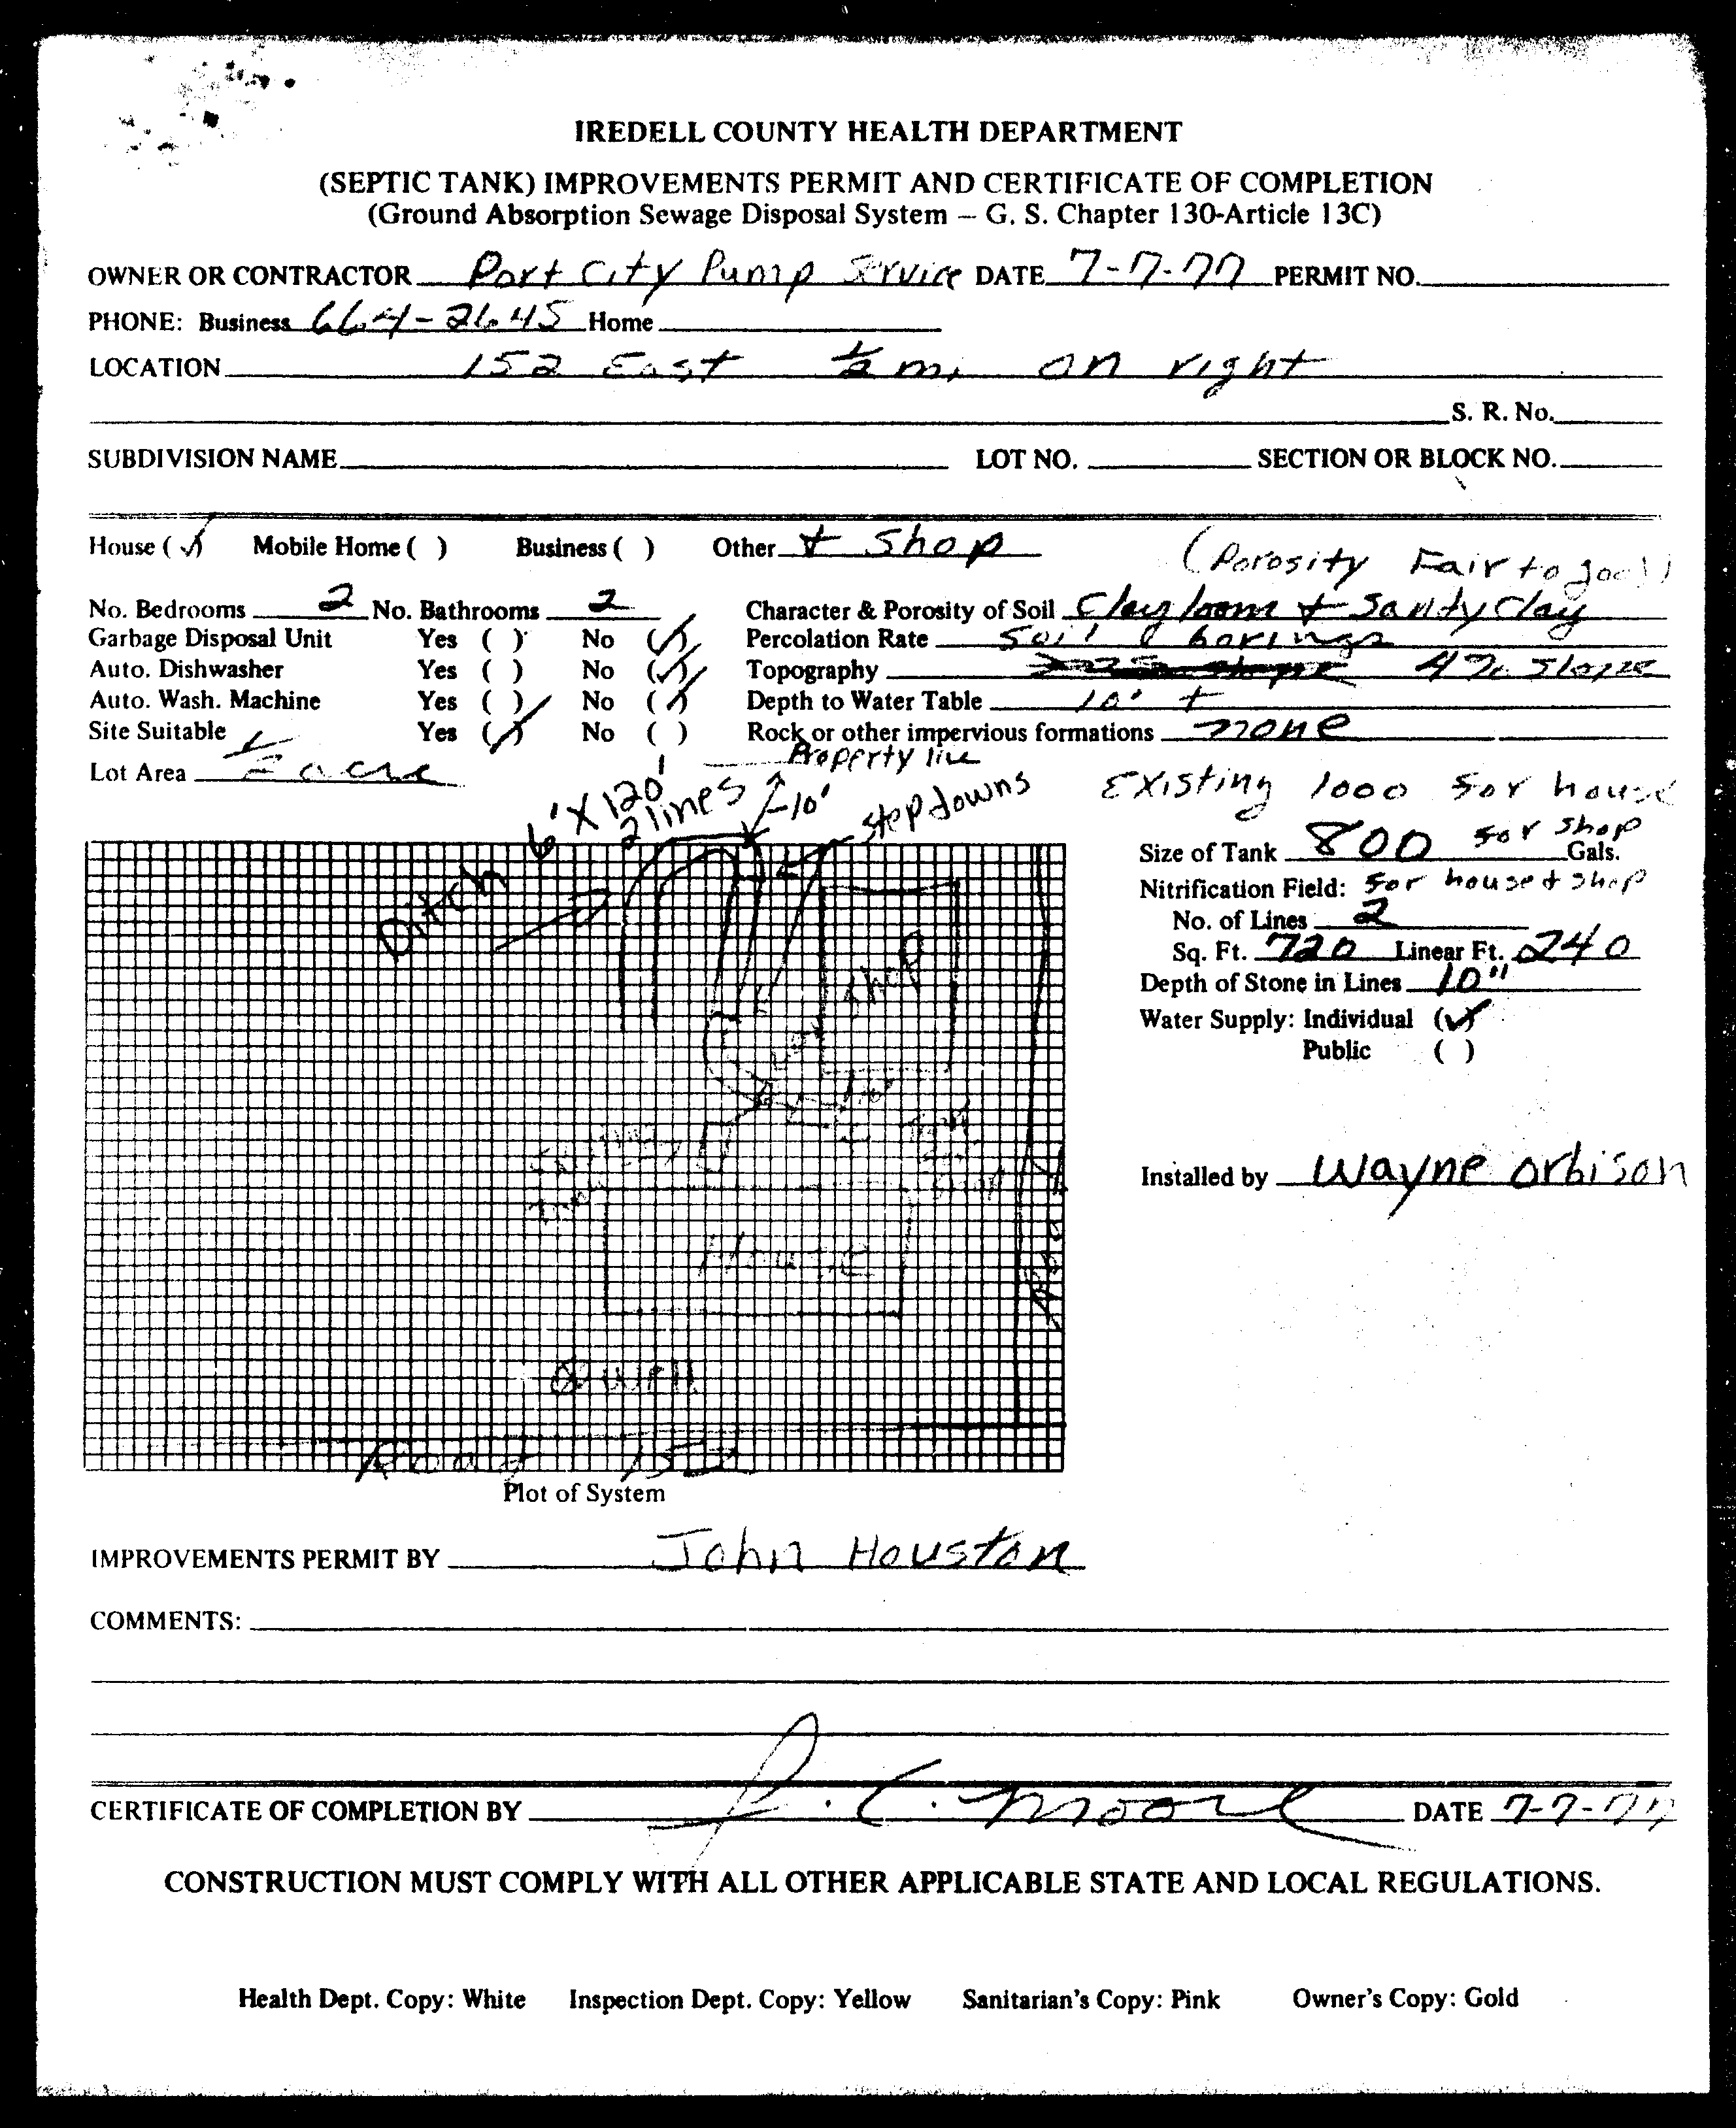 IREDELL COUNTY HEALTH DEPARTMENT
(SEPTIC TANK) IMPROVEMENTS PERMIT AND CERTIFICATE OF COMPLETION
(Ground Absorption Sewage Disposal System – G. S. Chapter 130-Article 13C)
OWNER OR CONTRACTOR Port City Pump Service DATE 7-7-77 PERMIT NO.
PHONE: Business 664-2645 Home
LOCATION 152 East ½ mi on right
S. R. No.
SUBDIVISION NAME LOT NO. SECTION OR BLOCK NO.
House (✓) Mobile Home ( ) Business ( ) Other + Shop
(Porosity Fair to good)
No. Bedrooms 2 No. Bathrooms 2 Character & Porosity of Soil Clay loam + Sandy Clay
Garbage Disposal Unit Yes ( ) No (✓) Percolation Rate Soil borings
Auto. Dishwasher Yes ( ) No (✓) Topography 4% slope
Auto. Wash. Machine Yes ( ) No (✓) Depth to Water Table 10' +
Site Suitable Yes (✓) No ( ) Rock or other impervious formations none
Lot Area ½ acre
Property line
6' X 120'
2 lines
10'
step downs
Existing 1000 for house
Size of Tank 800 for shop Gals.
Nitrification Field: for house + shop
No. of Lines 2
Sq. Ft. 720 Linear Ft. 240
Depth of Stone in Lines 10"
Water Supply: Individual (✓)
Public ( )
Ditch
Shop
House
Well
Road
Road 152
Installed by Wayne Orbison
Plot of System
IMPROVEMENTS PERMIT BY John Houston
COMMENTS:
CERTIFICATE OF COMPLETION BY J. C. Moore DATE 7-7-77
CONSTRUCTION MUST COMPLY WITH ALL OTHER APPLICABLE STATE AND LOCAL REGULATIONS.
Health Dept. Copy: White Inspection Dept. Copy: Yellow Sanitarian's Copy: Pink Owner's Copy: Gold